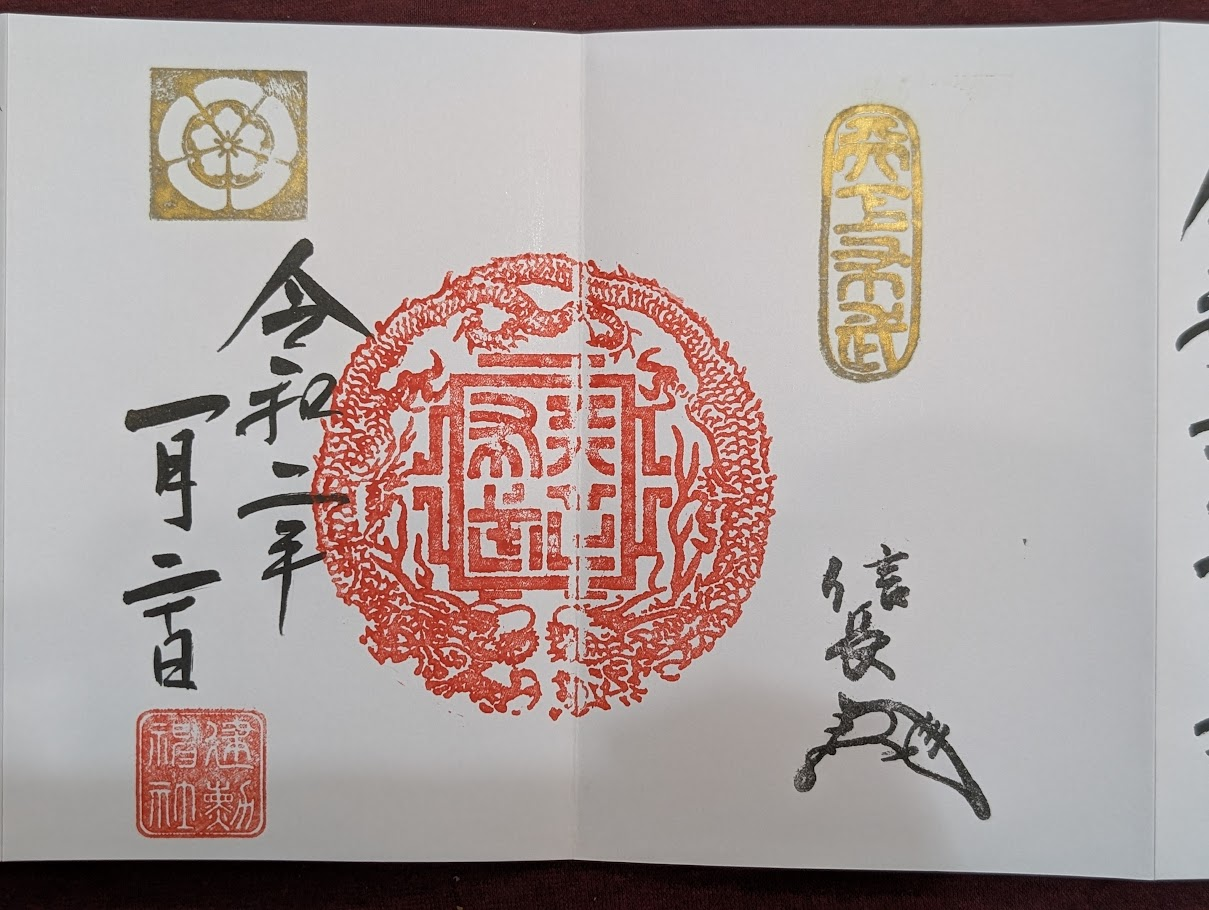 天下布武
信長
天下
布武
令和二年
一月二十日
建勲
神社